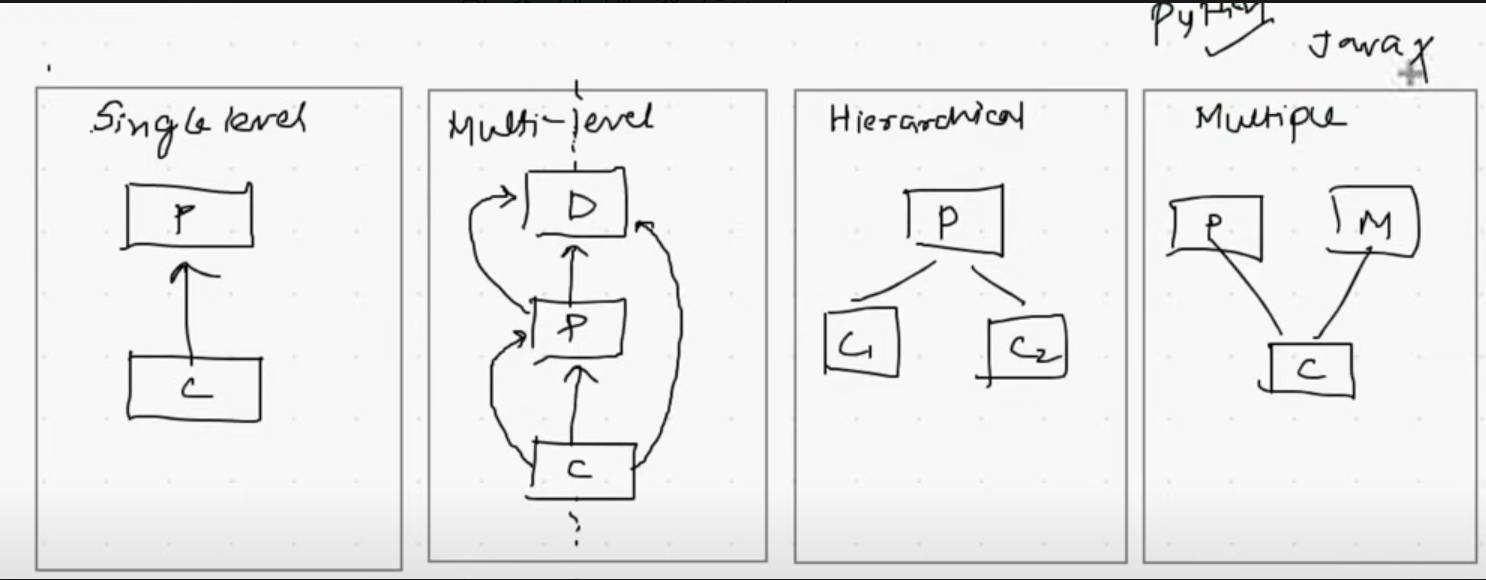 Python ✓
Java x
Single level
P
C
Multi-level
D
P
C
Hierarchical
P
C1
C2
Multiple
P
M
C